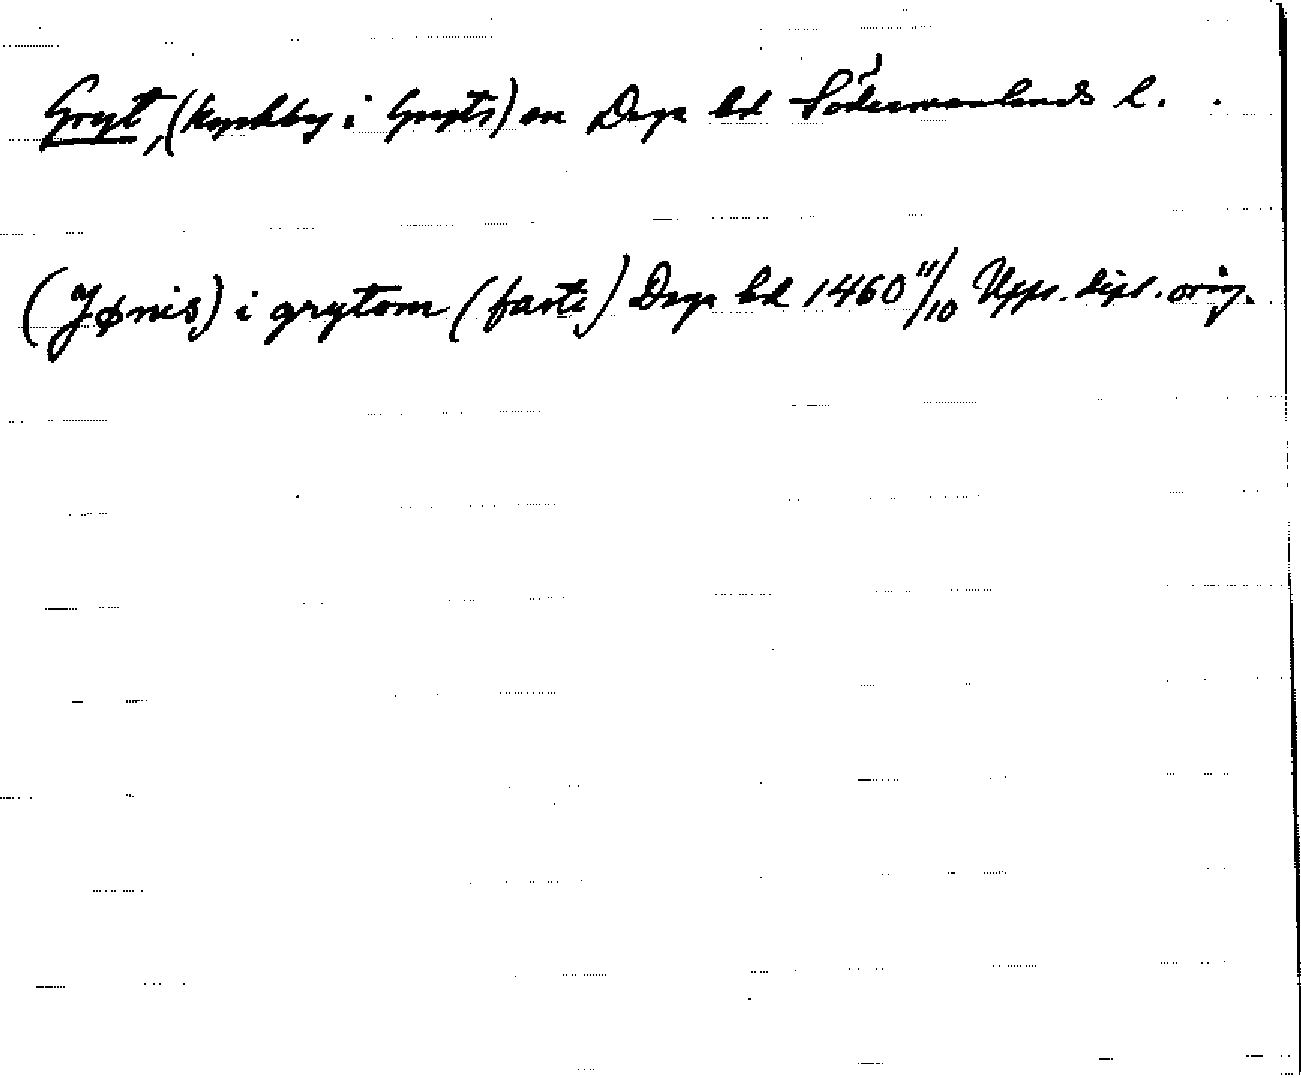 Gryt, (Kyrkby i Gryts) sn Daga hd Södermanlands l.
(Jønis) i grytom (faste) Daga hd 1460 11/10 Upps. dipl. orig.